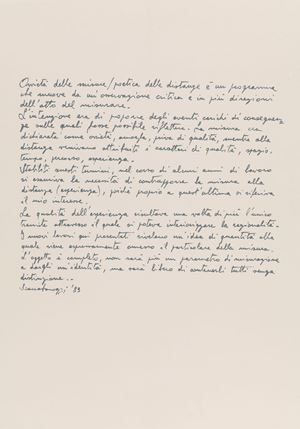 Ovvietà delle misure/poetica delle distanze è un programma
che muove da un'osservazione critica e in più direzioni
dell'atto del misurare.
L'intenzione era di proporre degli eventi carichi di conseguenze
sulle quali fosse possibile riflettere. La misura era
dichiarata come ovvietà, amorfa, priva di qualità, mentre alla
distanza venivano attribuiti i caratteri di qualità, spazio,
tempo, percorso, esperienza.
Stabiliti questi termini, nel corso di alcuni anni di lavoro
si esauriva la necessità di contrapporre la misura alla
distanza (esperienza), poiché proprio a quest'ultima si riferiva
il mio interesse.
La qualità dell'esperienza risultava una volta di più l'unico
tramite attraverso il quale si poteva interiorizzare la
I nuovi lavori qui presentati rivelano un'idea di quantità alla
quale viene espressamente connesso il particolare della misura.
L'oggetto è completo, non sarà più un parametro di misurazione
a dargli un'identità, ma sarà libero di contenerli tutti senza
distinzione..
'83